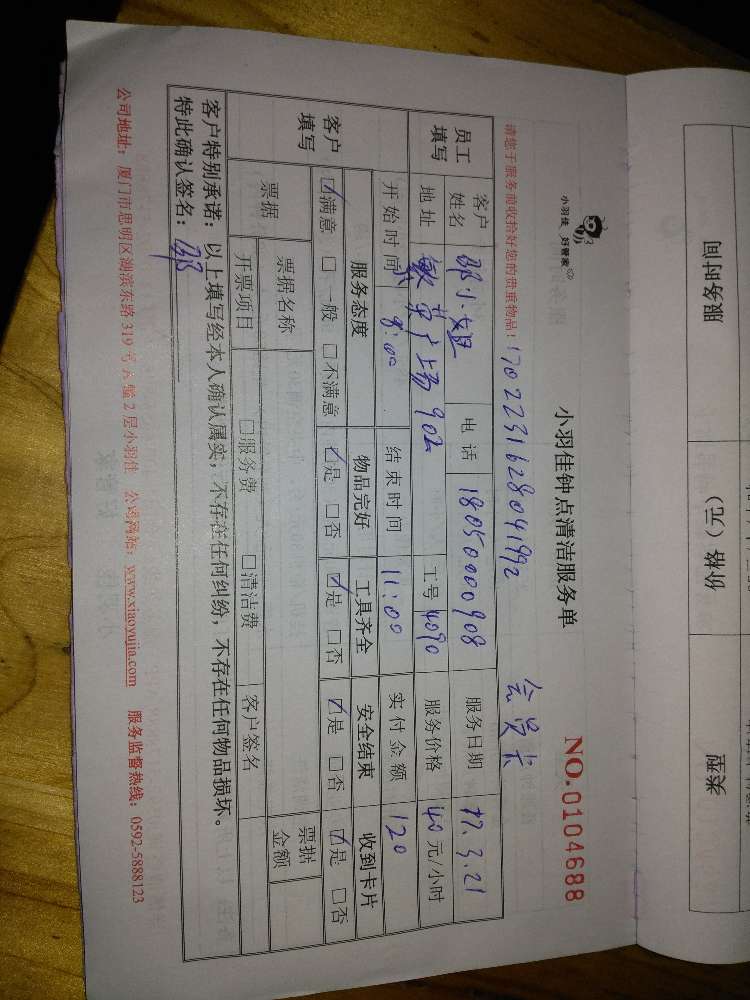 小羽佳 好管家
小羽佳钟点清洁服务单
NO.0104688
请您于服务前收拾好您的贵重物品！1702231628041992 会员卡
员工填写 客户姓名 邵小姐 电话 18050000908 服务日期 17.3.21
地址 902 工号 4090 服务价格 40元/小时
开始时间 8:00 结束时间 11:00 实付金额 120
客户填写 服务态度 物品完好 工具齐全 安全结束 收到卡片
☑满意 □一般 □不满意 ☑是 □否 ☑是 □否 ☑是 □否 ☑是 □否
票据 票据名称 票据金额
开票项目 □服务费 □清洁费 客户签名
客户特别承诺：以上填写经本人确认属实，不存在任何纠纷，不存在任何物品损坏。
特此确认签名：
公司地址：厦门市思明区湖滨东路319号A幢2层小羽佳 公司网站：www.xiaoyujia.com 服务监督热线：0592-5888123
服务时间
价格（元）
类型